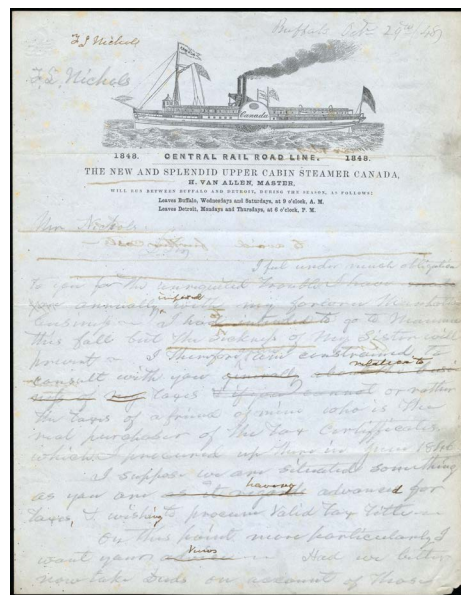 Buffalo Oct. 29th/48
F S Nichols
F. S. Nichols
Canada
1848. CENTRAL RAIL ROAD LINE. 1848.
THE NEW AND SPLENDID UPPER CABIN STEAMER CANADA,
H. VAN ALLEN, MASTER,
WILL RUN BETWEEN BUFFALO AND DETROIT, DURING THE SEASON, AS FOLLOWS:
Leaves Buffalo, Wednesdays and Saturdays, at 9 o'clock, A. M.
Leaves Detroit, Mondays and Thursdays, at 6 o'clock, P. M.
I feel under much obligation
to you for the unrequited trouble I have
you annually with my
I had intended to go to
this fall but the sickness of my Sister will
prevent – I therefore am constrained to
consult with you relative to
my taxes if you cannot or rather
the taxes of a friend of mine who is the
real purchaser of the tax certificates
which I procured up there in
I suppose we are situated something
as you are having advanced for
taxes, & wishing to procure valid tax titles
On this point more particularly I
want your views Had we better
now take Deeds on account of those